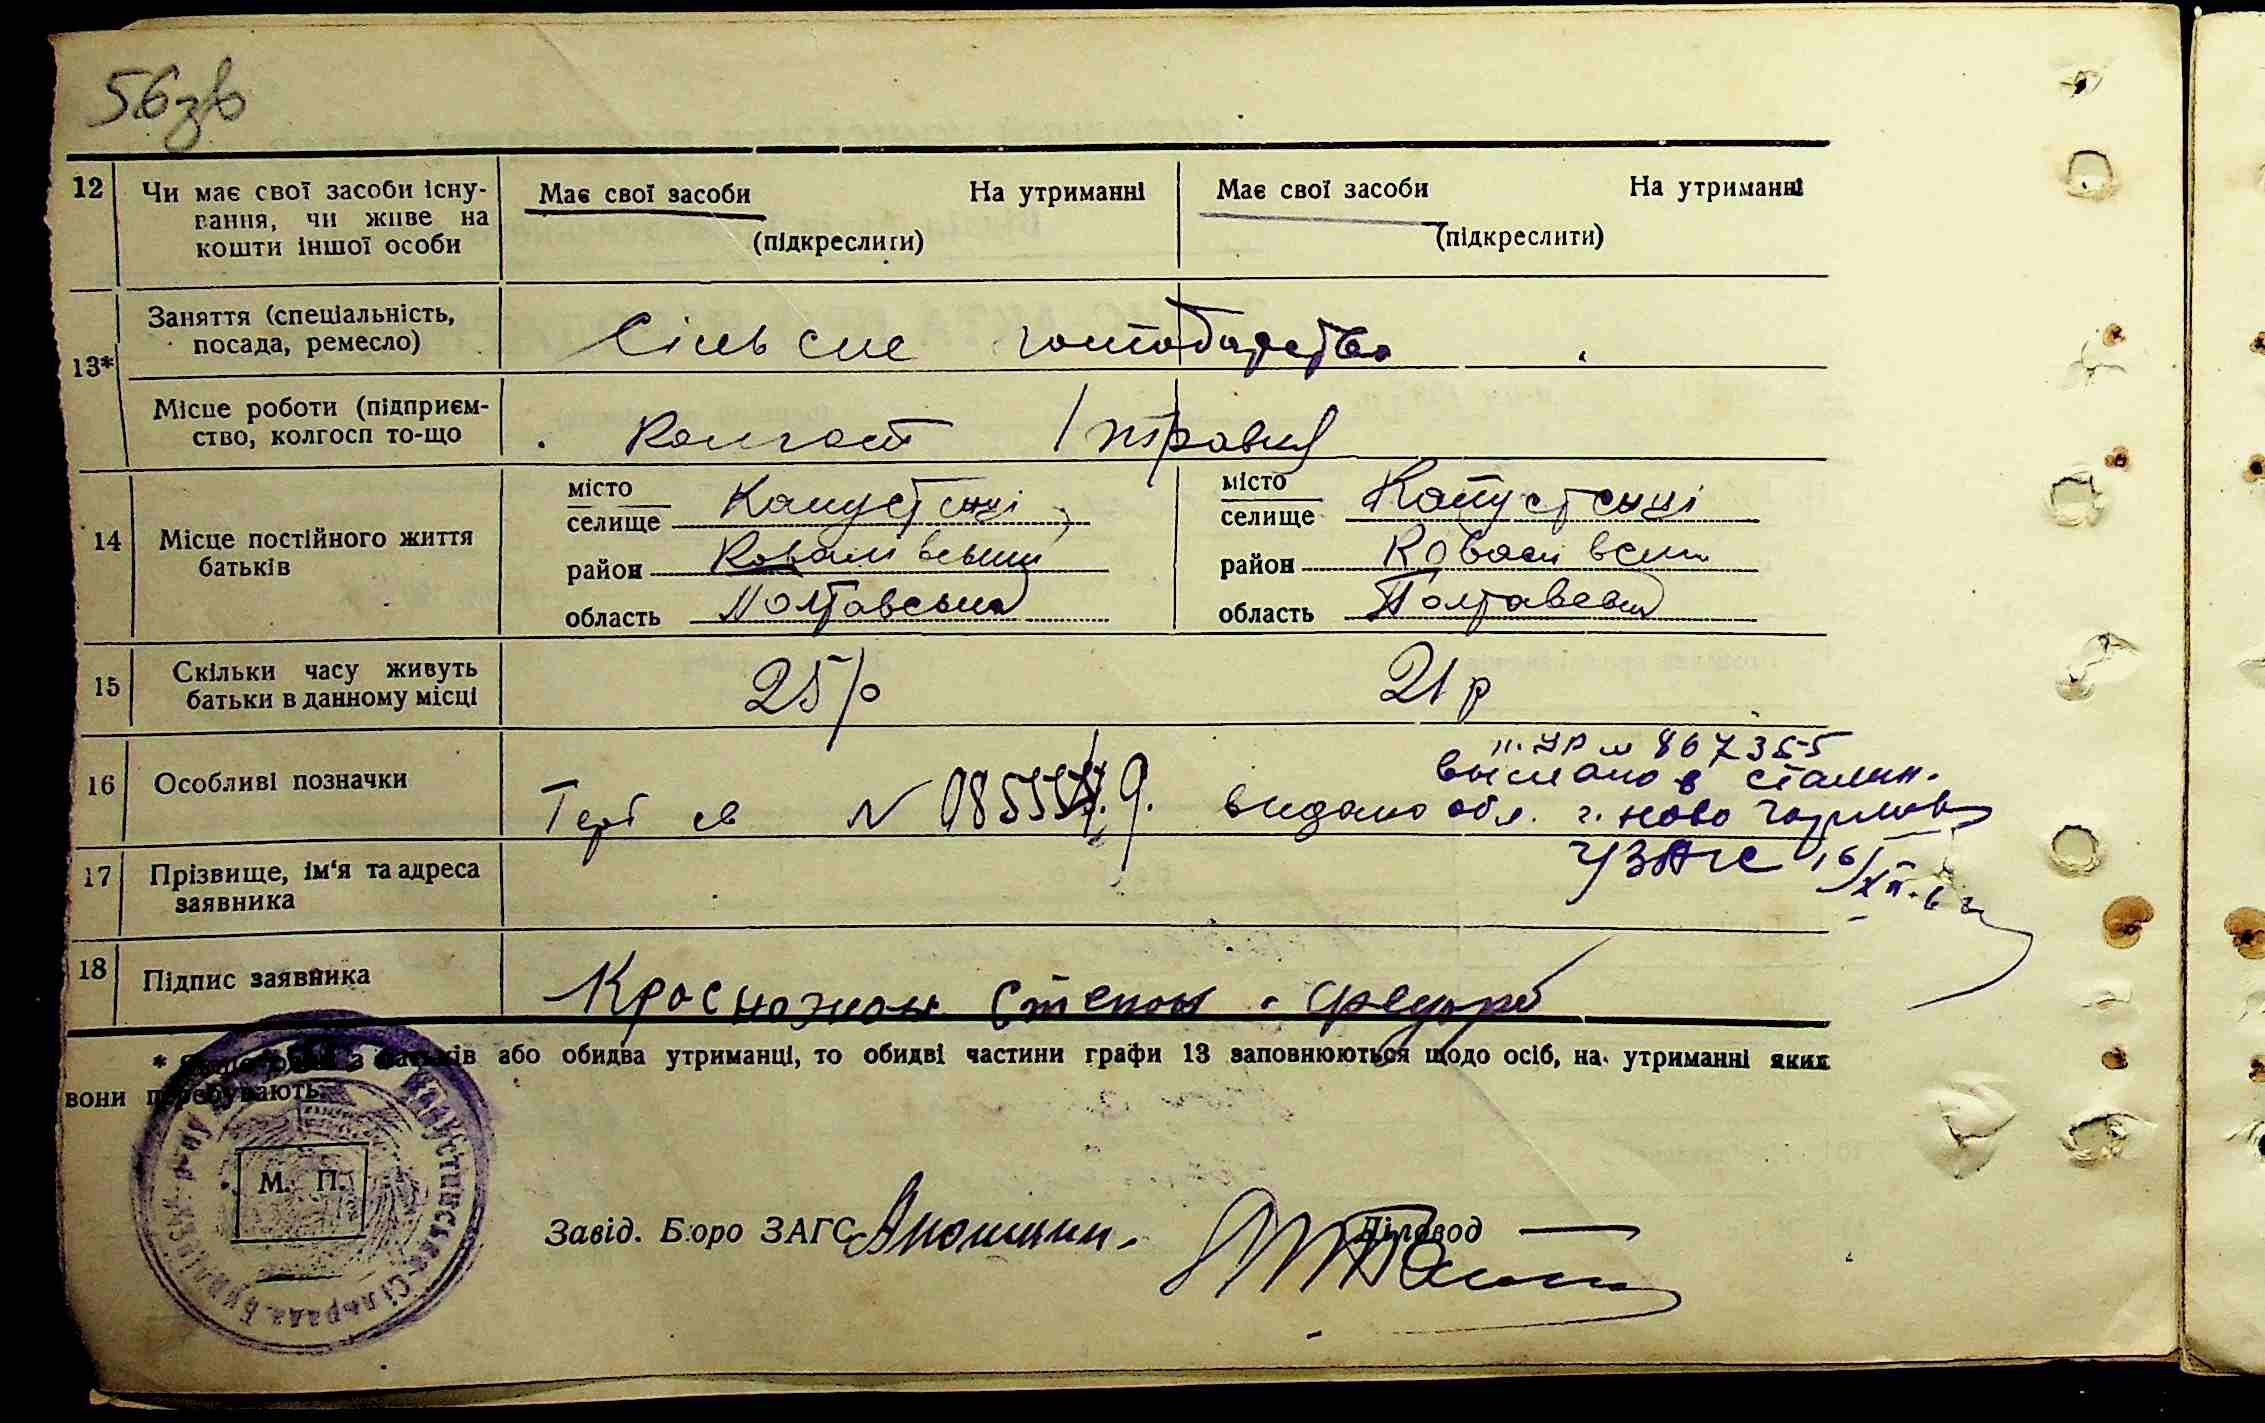 56зв
12 Чи має свої засоби існу- Має свої засоби На утриманні Має свої засоби На утриманні
вання, чи живе на
кошти іншої особи (підкреслити) (підкреслити)
13* Заняття (спеціальність,
посада, ремесло) Сільське господарство
Місце роботи (підприєм-
ство, колгосп то-що Колгосп 1 травня
14 Місце постійного життя
батьків
місто
селище Капустенці
район Ковалівський
область Полтавська
місто
селище Капустенці
район Ковалівськ
область Полтавська
15 Скільки часу живуть
батьки в данному місці 25 р 21 р
УР № 867355
16 Особливі позначки выслано в Сталин.
N видано обл. г. ново
УЗАГС 16/XII
17 Прізвище, ім'я та адреса
заявника
18 Підпис заявника Красножон Степан Федор
* з батьків або обидва утриманці, то обидві частини графи 13 заповнюються щодо осіб, на утриманні яких
вони перебувають.
Капустинська Сільрада
М. П.
Завід. Бюро ЗАГС Діловод